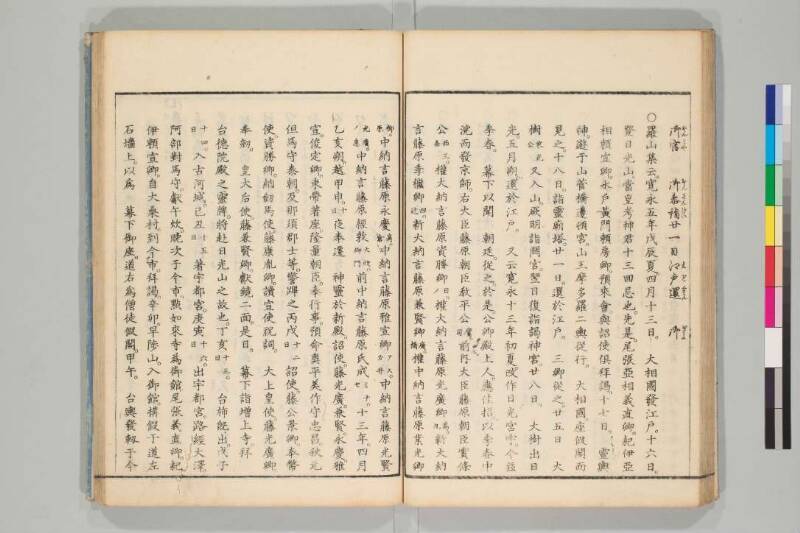 ○羅山集云寛永五年戊辰夏四月十三日。大相國發江戸。十六日。
登日光山。當皇考神君十三回忌也。先是尾張亞相義直卿。紀伊亞
相頼宣卿。水戸黄門頼房卿預來會與詔使倶拜謁。十七日。靈輿
神遊于山菅橋邊。頓宮山王摩多羅二輿從行。大相國座假閣而
見之。十八日。詣靈廟塔。廿一日。還於江戸。三卿從之。廿五日大
樹又入山。厥明詣閟宮。翌日復詣謁神宮。廿八日。大樹出日
光。五月朔。還於江戸。又云寛永十三年初夏。改作日光宮
季春。幕下以聞朝廷從之。於是公卿殿上人應佳招以季春中
浣而發京師。右大臣藤原朝臣教平公前内大臣藤原朝臣實條
公權大納言藤原資勝卿權大納言藤原光廣卿新大納
言藤原季繼卿新大納言藤原兼賢卿權中納言藤原業光卿
中納言藤原永慶中納言藤原雅宣卿中納言藤原光賢
中納言藤原經敦前中納言藤原氏成十三年四月
乙亥朔。越甲申。十日夜奉遷神靈於新殿。詔使藤光廣兼賢永慶雅
宣俊定卿。束帶著座。隆量朝臣奉行事。預命奥平美作守忠昌秋元
但馬守泰朝。及那須郡士等。警蹕之。丙戌。十二日詔使藤公景卿奉幣
使資勝卿。納劔馬使藤康胤卿。讀宣使祝詞。大上皇使藤光廣卿
奉劔。皇太后使藤兼賢卿獻鏡二面。是日。幕下詣増上寺。拜
台德院殿之靈牌。將赴日光山之故也。丁亥。十三日台旆既出。戊子。
十四日入古河城。己丑。十五日著宇都宮。庚寅。十六日出宇都宮路經大澤。
阿部對馬守。獻午炊。晩次于今市。點如來寺爲御館。尾張義直卿紀
伊頼宣卿。自大桑村到今市。拜謁。辛卯早陟山。入御館。構假亭道左
石壇上。以爲幕下御座。道右爲僧徒假閣。甲午。台輿發軔于今